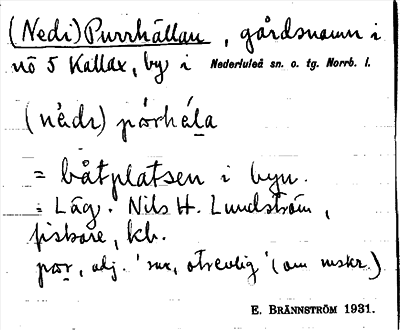 (Nedi) Purrhällan, gårdsnamn i
nö 5 Kallax, by i Nederluleå sn. o. tg. Norrb. l.
= båtplatsen i byn.
= Läg. Nils H. Lundström,
fiskare, kb.
adj. 'sur, otrevlig' (om mskr.)
E. BRÄNNSTRÖM 1931.